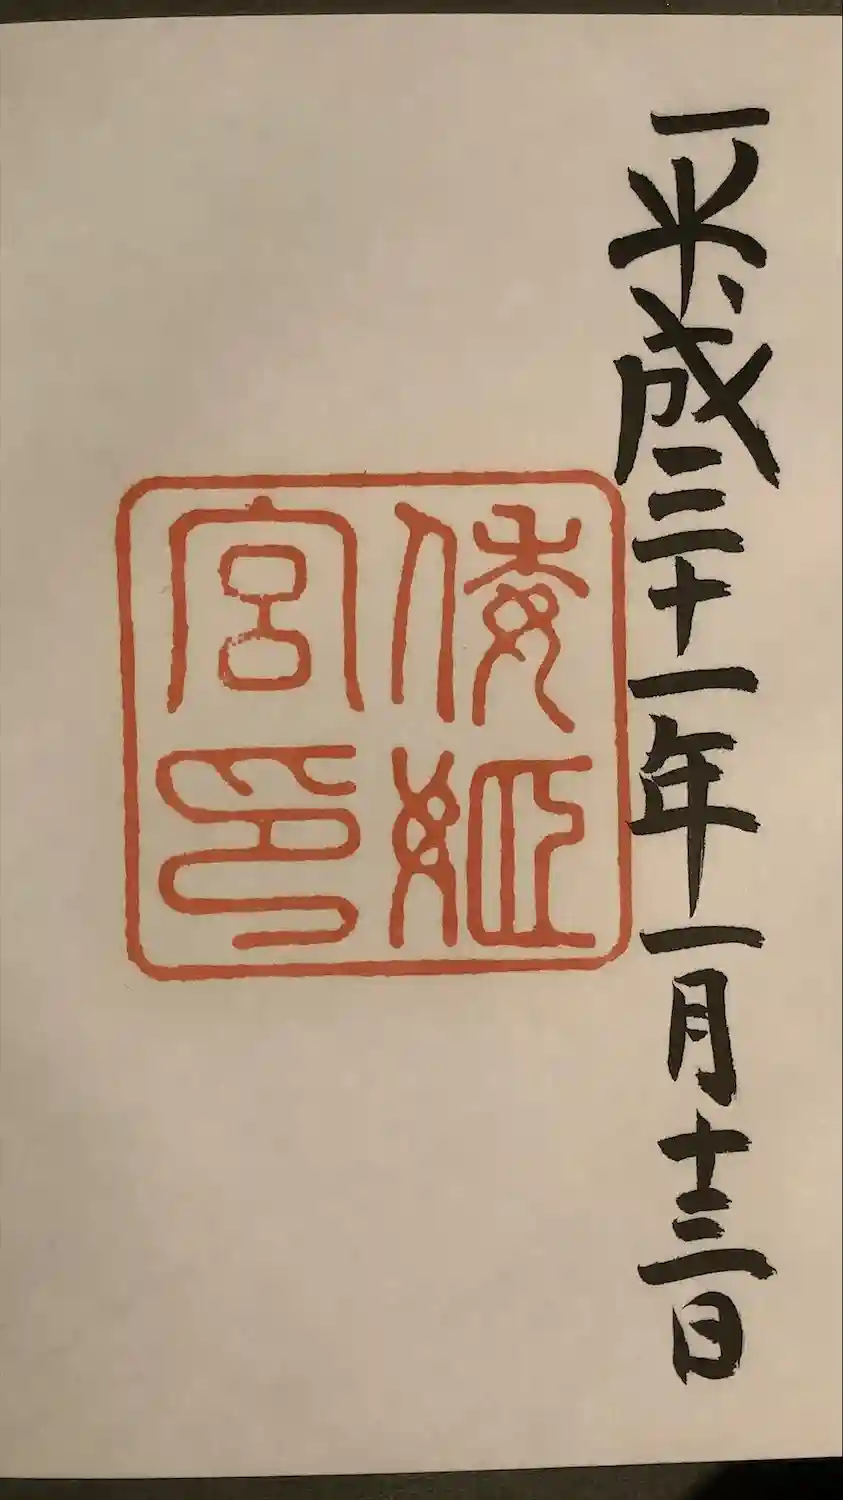 平成三十一年一月十三日
倭姫
宮印